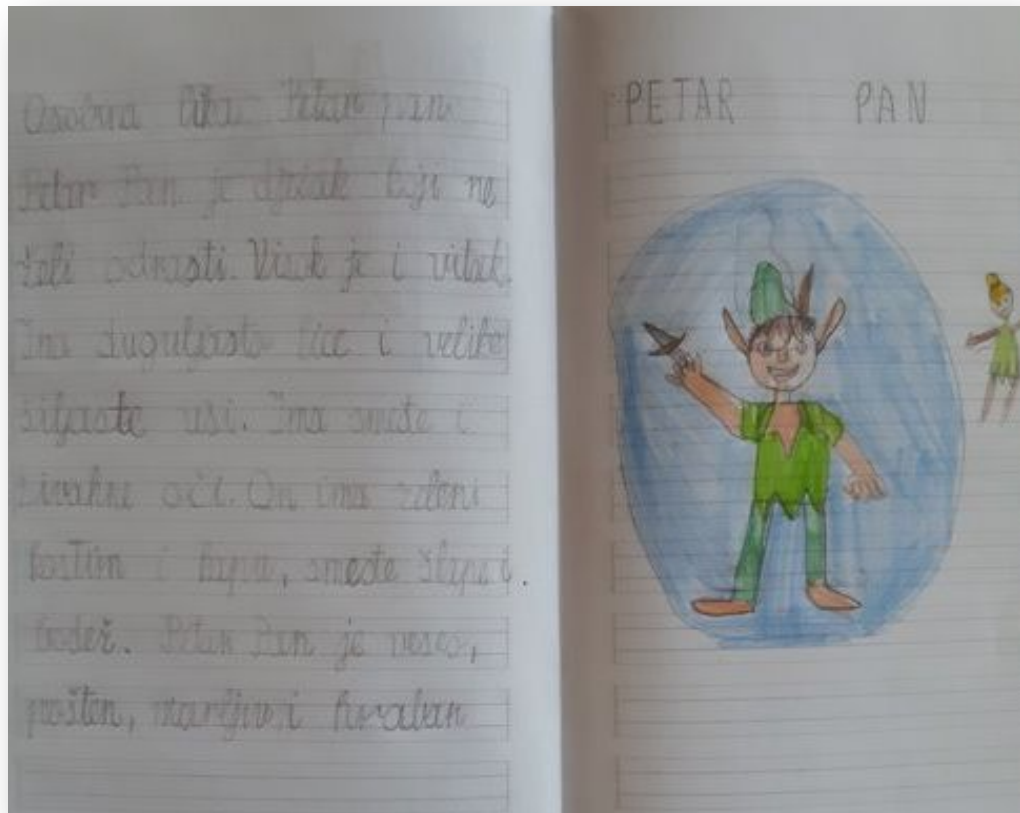 Osobina lika Petar pan
Petar Pan je dječak koji ne
želi odrasti. Visok je i vitak.
Ima duguljasto lice i velike
šiljaste uši. Ima smeđe i
oči. On ima zeleni
kostim i kapu, smeđe i
bodež. Petar Pan je
pošten, marljiv i hrabar
PETAR PAN